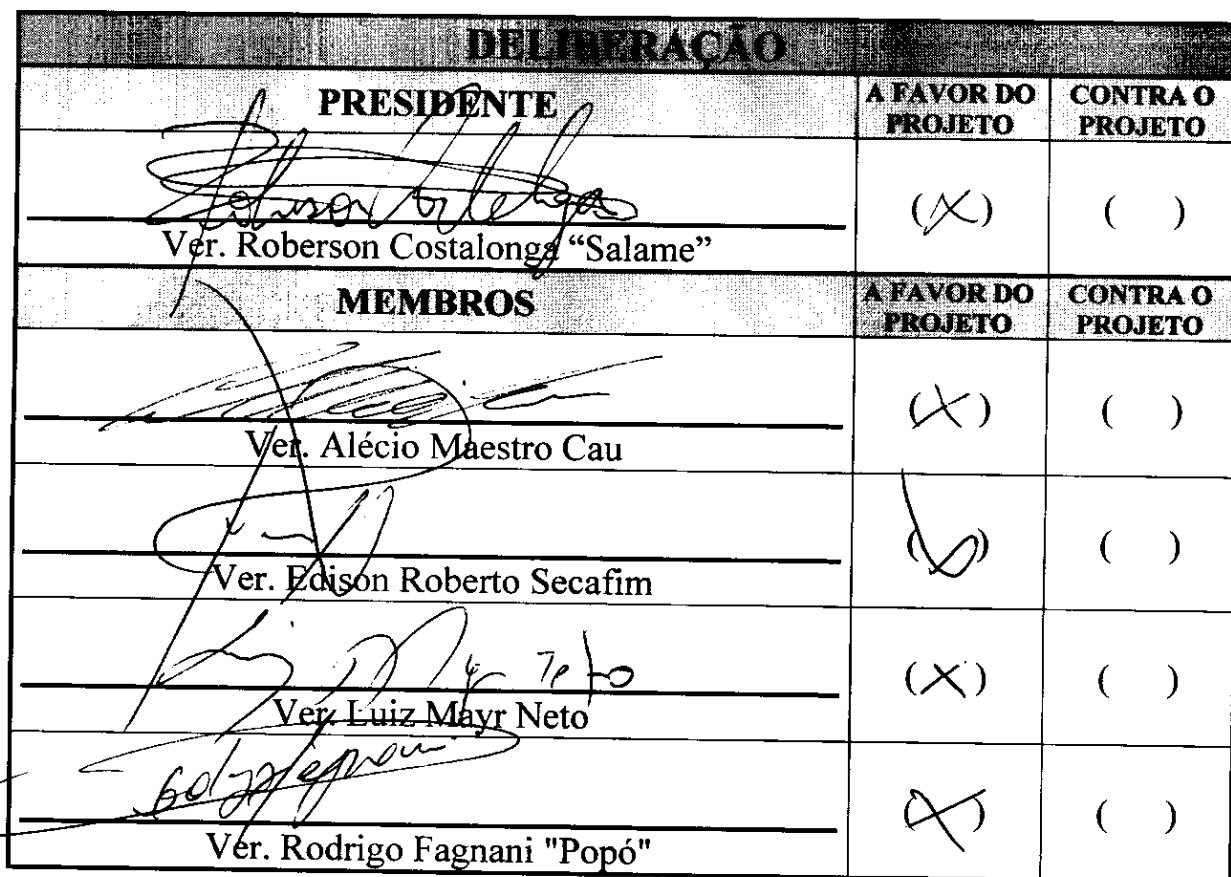 DELIBERAÇÃO
PRESIDENTE
A FAVOR DO PROJETO
CONTRA O PROJETO
(X) ( )
Ver. Roberson Costalonga “Salame”
MEMBROS
A FAVOR DO PROJETO
CONTRA O PROJETO
(X) ( )
Ver. Alécio Maestro Cau
( ) ( )
Ver. Edison Roberto Secafim
(X) ( )
Ver. Luiz Mayr Neto
(X) ( )
Ver. Rodrigo Fagnani "Popó"